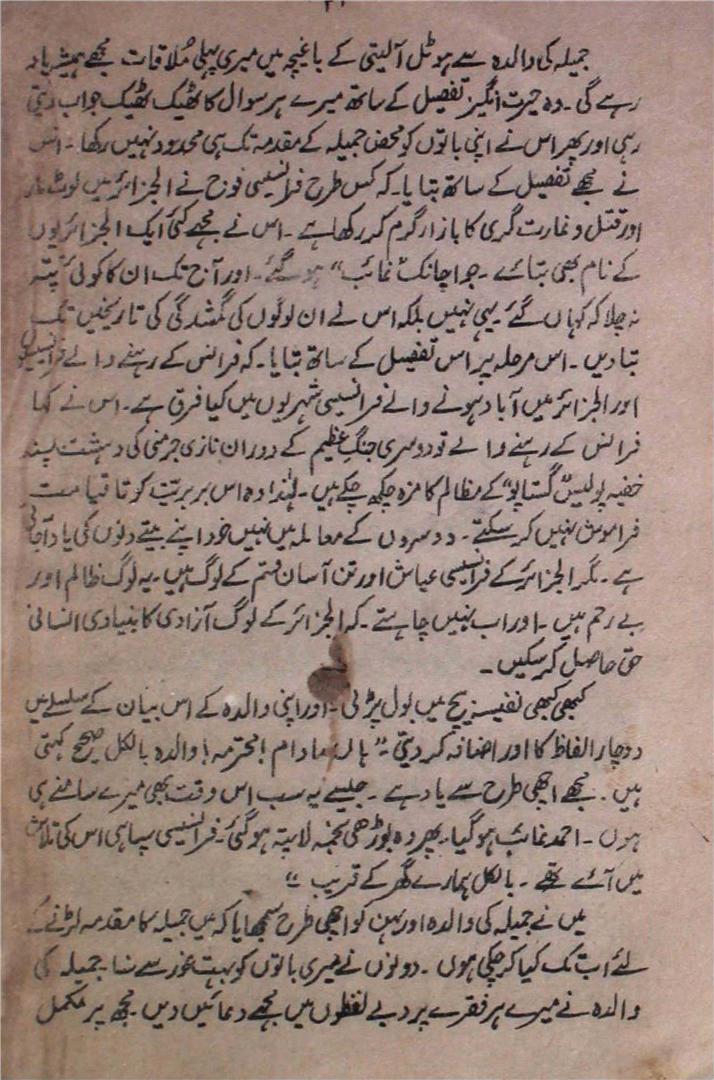 جمیلہ کی والدہ سے ہوٹل آلیتی کے باغیچہ میں میری پہلی مُلاقات مجھے ہمیشہ یاد
رہے گی۔ وہ حیرت انگیز تفصیل کے ساتھ میرے ہر سوال کا ٹھیک ٹھیک جواب دیتی
رہی اور پھر اس نے اپنی باتوں کو محض جمیلہ کے مقدمہ تک ہی محدود نہیں رکھا۔ اس
نے مجھے تفصیل کے ساتھ بتایا۔ کہ کس طرح فرانسیسی فوج نے الجزائر میں لوٹ مار
اور قتل و غارت گری کا بازار گرم کر رکھا ہے۔ اس نے مجھے کئی ایک الجزائریوں
کے نام بھی بتائے۔ جو اچانک "غائب" ہو گئے۔ اور آج تک ان کا کوئی پتہ
نہ چلا کہ کہاں گئے۔ یہی نہیں بلکہ اس نے ان لوگوں کی گمشدگی کی تاریخیں تک
بتا دیں۔ اس مرحلہ پر اس تفصیل کے ساتھ بتایا۔ کہ فرانس کے رہنے والے فرانسیسیوں
اور الجزائر میں آباد ہونے والے فرانسیسی شہریوں میں کیا فرق ہے۔ اس نے کہا
فرانس کے رہنے والے تو دوسری جنگِ عظیم کے دوران نازی جرمنی کی دہشت پسند
خفیہ پولیس "گستاپو" کے مظالم کا مزہ چکھ چکے ہیں۔ لہٰذا وہ اس بربریّت کو تا قیامت
فراموش نہیں کر سکتے۔ دوسروں کے معاملہ میں انہیں خود اپنے بیتے دنوں کی یاد آجاتی
ہے۔ مگر الجزائر کے فرانسیسی عیاش اور تن آسان قسم کے لوگ ہیں۔ یہ لوگ ظالم اور
بے رحم ہیں۔ اور اب نہیں چاہتے۔ کہ الجزائر کے لوگ آزادی کا بنیادی انسانی
حق حاصل کر سکیں۔
کبھی کبھی نفیسہ بیچ میں بول پڑتی۔ اور اپنی والدہ کے اس بیان کے سلسلے میں
دو چار الفاظ کا اور اضافہ کر دیتی۔ "ہاں مادام! محترمہ! والدہ بالکل صحیح کہتی
ہیں۔ مجھے اچھی طرح سے یاد ہے۔ جیسے یہ سب اس وقت بھی میرے سامنے ہی
ہوں۔ احمد غائب ہو گیا۔ پھر وہ بوڑھی نجمہ لاپتہ ہو گئی۔ فرانسیسی سپاہی اس کی تلاش
میں آئے تھے۔ بالکل ہمارے گھر کے قریب۔"
میں نے جمیلہ کی والدہ اور بہن کو اچھی طرح سمجھایا کہ میں جمیلہ کا مقدمہ لڑنے کے
لئے اب تک کیا کر چکی ہوں۔ دونوں نے میری باتوں کو بہت غور سے سنا۔ جمیلہ کی
والدہ نے میرے ہر فقرے پر دبے لفظوں میں مجھے دعائیں دیں۔ مجھ پر مکمل